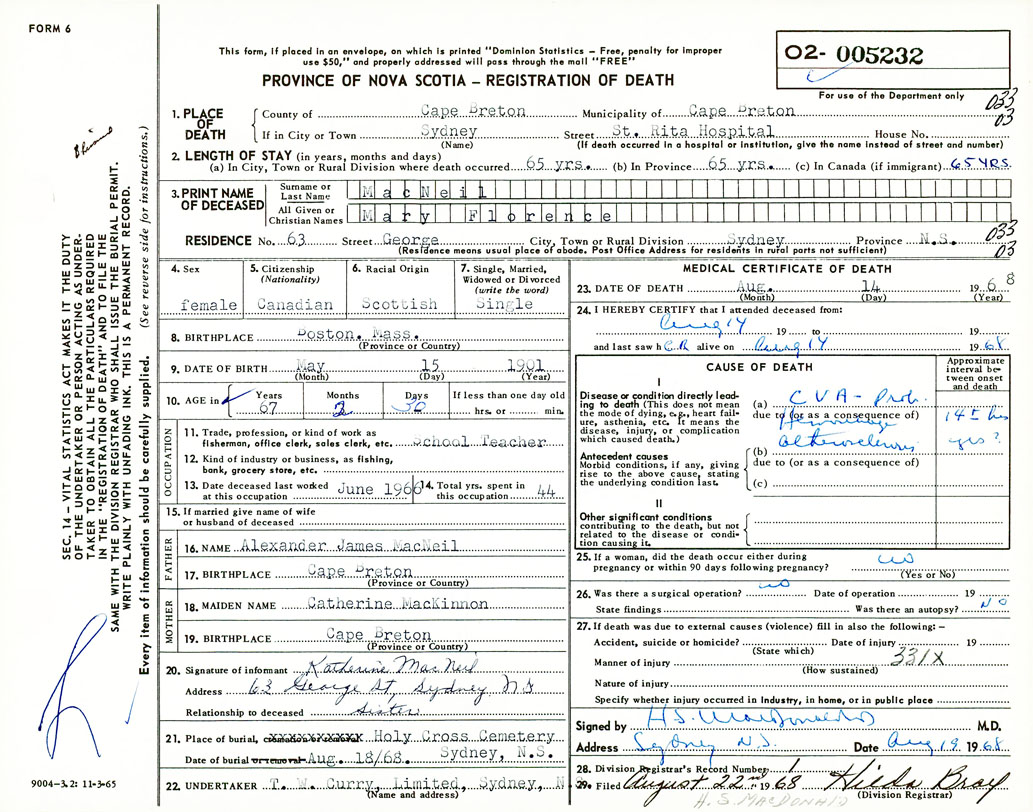 FORM 6
This form, if placed in an envelope, on which is printed "Dominion Statistics – Free, penalty for improper
use $50," and properly addressed will pass through the mail "FREE"
PROVINCE OF NOVA SCOTIA – REGISTRATION OF DEATH
02- 005232
For use of the Department only
033
03
1. PLACE OF DEATH
County of Cape Breton Municipality of Cape Breton
If in City or Town Sydney Street St. Rita Hospital House No.
(Name) (If death occurred in a hospital or institution, give the name instead of street and number)
2. LENGTH OF STAY (in years, months and days)
(a) In City, Town or Rural Division where death occurred 65 yrs. (b) In Province 65 yrs. (c) In Canada (if immigrant) 65 YRS.
3. PRINT NAME OF DECEASED
Surname or Last Name MacNeil
All Given or Christian Names Mary Florence
RESIDENCE No. 63 Street George City, Town or Rural Division Sydney Province N.S.
(Residence means usual place of abode. Post Office Address for residents in rural parts not sufficient)
033
03
4. Sex
female
5. Citizenship
(Nationality)
Canadian
6. Racial Origin
Scottish
7. Single, Married,
Widowed or Divorced
(write the word)
Single
8. BIRTHPLACE Boston, Mass.
(Province or Country)
9. DATE OF BIRTH May 15 1901
(Month) (Day) (Year)
10. AGE in
Years 67
Months 2
Days 30
If less than one day old
hrs. or min.
OCCUPATION
11. Trade, profession, or kind of work as
fisherman, office clerk, sales clerk, etc. School Teacher
12. Kind of industry or business, as fishing,
bank, grocery store, etc.
13. Date deceased last worked
at this occupation June 1966
14. Total yrs. spent in
this occupation 44
15. If married give name of wife
or husband of deceased
FATHER
16. NAME Alexander James MacNeil
17. BIRTHPLACE Cape Breton
(Province or Country)
MOTHER
18. MAIDEN NAME Catherine MacKinnon
19. BIRTHPLACE Cape Breton
(Province or Country)
20. Signature of informant Katherine MacNeil
Address 63 George St, Sydney NS
Relationship to deceased Sister
21. Place of burial, cremation or removal Holy Cross Cemetery
Date of burial or removal Aug. 18/68. Sydney, N.S.
22. UNDERTAKER T. W. Curry, Limited, Sydney, N
(Name and address)
MEDICAL CERTIFICATE OF DEATH
23. DATE OF DEATH Aug. 14 1968
(Month) (Day) (Year)
24. I HEREBY CERTIFY that I attended deceased from:
Aug 14 19 to 19
and last saw her alive on Aug 14 1968
CAUSE OF DEATH
Approximate
interval be-
tween onset
and death
I
Disease or condition directly lead-
ing to death (This does not mean
the mode of dying, e.g., heart fail-
ure, asthenia, etc. It means the
disease, injury, or complication
which caused death.)
(a) CVA - Prob.
due to (or as a consequence of)
Hemorrhage
Antecedent causes
Morbid conditions, if any, giving
rise to the above cause, stating
the underlying condition last.
(b)
yrs?
due to (or as a consequence of)
(c)
II
Other significant conditions
contributing to the death, but not
related to the disease or condi-
tion causing it.
25. If a woman, did the death occur either during
pregnancy or within 90 days following pregnancy? no
(Yes or No)
26. Was there a surgical operation? no Date of operation 19
State findings Was there an autopsy? NO
27. If death was due to external causes (violence) fill in also the following: –
Accident, suicide or homicide? Date of injury 19
(State which)
Manner of injury 331X
(How sustained)
Nature of injury
Specify whether injury occurred in Industry, in home, or in public place
Signed by H.S. MacDonald M.D.
Address Sydney N.S. Date Aug 19 1968
28. Division Registrar's Record Number 1
29. Filed August 22nd 1968 Hilda Bray
(Division Registrar)
H. S. MACDONALD
SEC. 14 – VITAL STATISTICS ACT MAKES IT THE DUTY
OF THE UNDERTAKER OR PERSON ACTING AS UNDER-
TAKER TO OBTAIN ALL THE PARTICULARS REQUIRED
IN THE "REGISTRATION OF DEATH" AND TO FILE THE
SAME WITH THE DIVISION REGISTRAR WHO SHALL ISSUE THE BURIAL PERMIT.
WRITE PLAINLY WITH UNFADING INK. THIS IS A PERMANENT RECORD.
Every item of information should be carefully supplied. (See reverse side for instructions.)
9004–3.2: 11-3-65